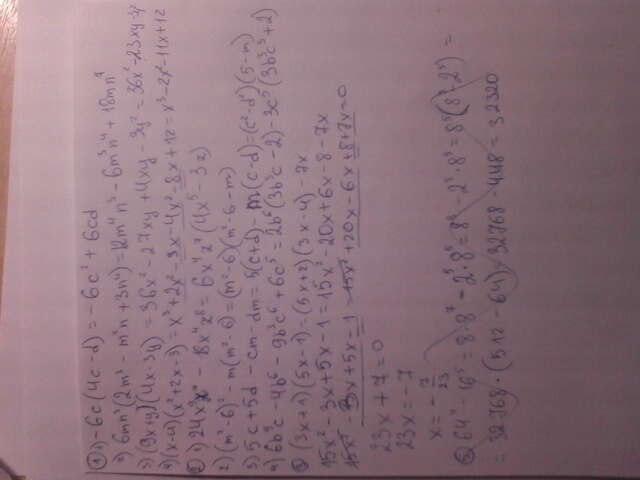 ① 1) -6c(4c-d) = -6c² + 6cd
2) 6mn³(2m³ - m²n + 3n⁴) = 12m⁴n³ - 6m³n⁴ + 18mn⁷
3) (9x+y)(4x-3y) = 36x² - 27xy + 4xy - 3y² = 36x² - 23xy - 3y²
4) (x-4)(x²+2x-3) = x³ + 2x² - 3x - 4x² - 8x + 12 = x³ - 2x² - 11x + 12
② 1) 24x⁹z⁷ - 18x⁴z⁸ = 6x⁴z⁷(4x⁵ - 3z)
2) (m²-6)² - m(m²-6) = (m²-6)(m²-6-m)
3) 5c + 5d - cm - dm = 5(c+d) - m(c-d) = (c²-d²)(5-m)
4) 6b⁹c - 4b⁶ - 9b³c⁶ + 6c⁵ = 2b⁶(3b³c - 2) - 3c⁵(3b³c³+2)
③ (3x+1)(5x-1) = (5x+2)(3x-4) - 7x
15x² - 3x + 5x - 1 = 15x² - 20x + 6x - 8 - 7x
15x² - 3x + 5x - 1 - 15x² + 20x - 6x + 8 + 7x = 0
23x + 7 = 0
23x = -7
x = - 7/23
= 32768 · (512 - 64) = 32768 · 448 = 32320